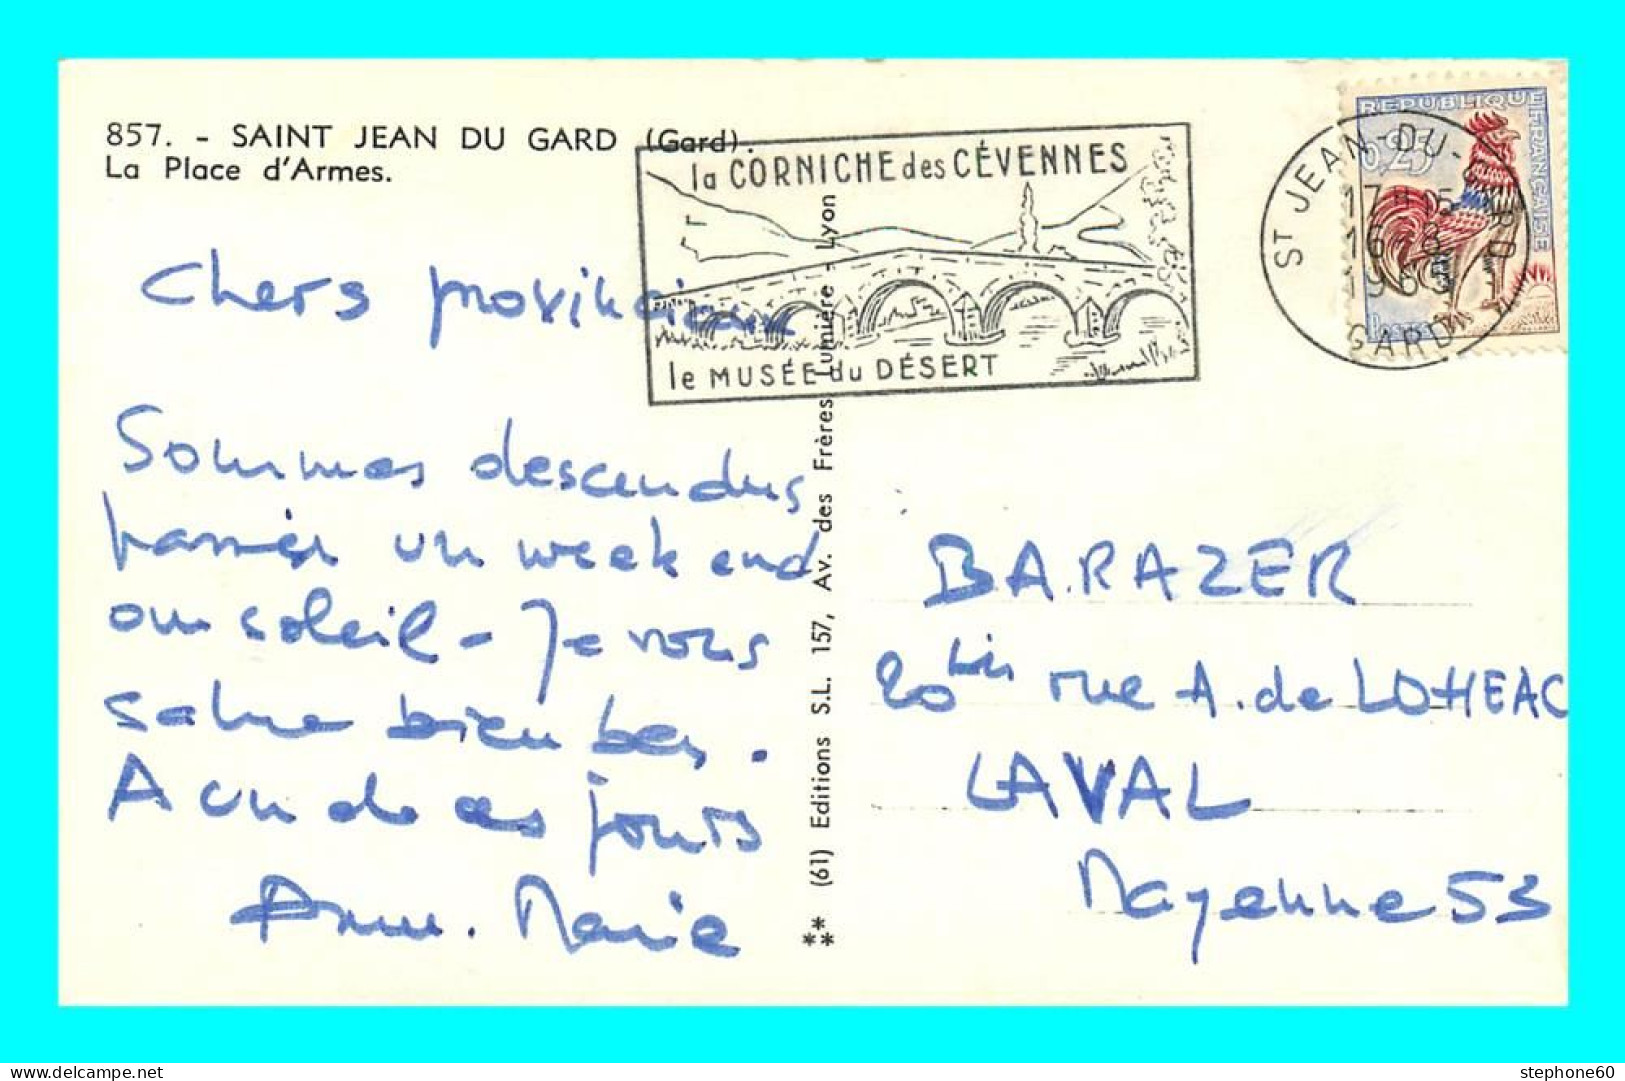 857. - SAINT JEAN DU GARD (Gard).
La Place d'Armes.
la CORNICHE des CÉVENNES
le MUSÉE du DÉSERT
REPUBLIQUE
FRANÇAISE
0,25
ST JEAN-DU-GARD
17H
16 - 8
196
GARD
Chers provinciaux
Sommes descendus
passer un week end
au soleil - Je vous
salue bien bas.
A un de ces jours
Anne. Marie
** (61) Editions S.L. 157, Av. des Frères Lumière - Lyon
BARAZER
20 bis rue A. de LOHEAC
LAVAL
Mayenne 53
stephone60